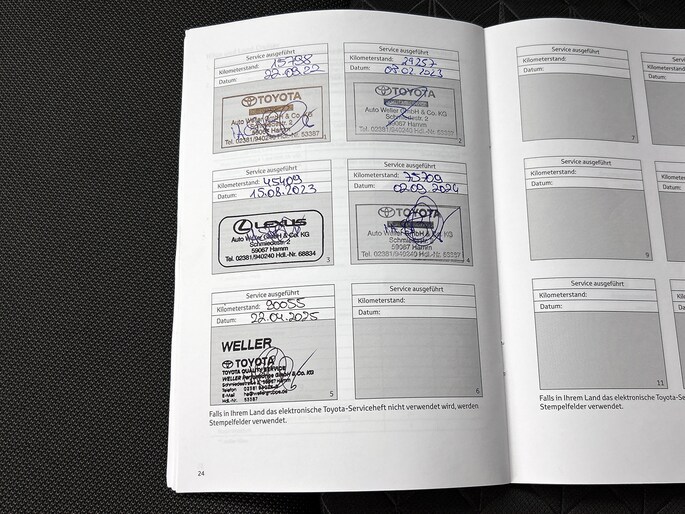 Service ausgeführt
Kilometerstand: 15798
Datum: 22.09.22
TOYOTA
Auto Weller GmbH & Co. KG
Schmiedestr. 2
59067 Hamm
Tel. 02381/940240 Hdl.-Nr. 53387
1
Service ausgeführt
Kilometerstand: 29257
Datum: 03.02.2023
TOYOTA
Auto Weller GmbH & Co. KG
Schmiedestr. 2
59067 Hamm
Tel. 02381/940240 Hdl.-Nr. 53387
2
Service ausgeführt
Kilometerstand: 45409
Datum: 15.08.2023
LEXUS
Auto Weller GmbH & Co. KG
Schmiedestr. 2
59067 Hamm
Tel. 02381/940240 Hdl.-Nr. 68834
3
Service ausgeführt
Kilometerstand: 75709
Datum: 02.09.2024
TOYOTA
Auto Weller GmbH & Co. KG
Schmiedestr. 2
59067 Hamm
Tel. 02381/940240 Hdl.-Nr. 53387
4
Service ausgeführt
Kilometerstand: 90055
Datum: 22.04.2025
WELLER
TOYOTA
TOYOTA QUALITY SERVICE
WELLER GmbH & Co. KG
Telefon
E-Mail
Hdl.-Nr. 53387
5
Service ausgeführt
Kilometerstand:
Datum:
6
Falls in Ihrem Land das elektronische Toyota-Serviceheft nicht verwendet wird, werden
Stempelfelder verwendet.
24
Service ausgeführt
Kilometerstand:
Datum:
7
Kilometerstand:
Datum:
Service ausgeführt
Kilometerstand:
Datum:
9
Kilometerstand:
Datum:
Service ausgeführt
Kilometerstand:
Datum:
11
Kilometerstand:
Datum:
Falls in Ihrem Land das elektronische Toyota-Se
Stempelfelder verwendet.